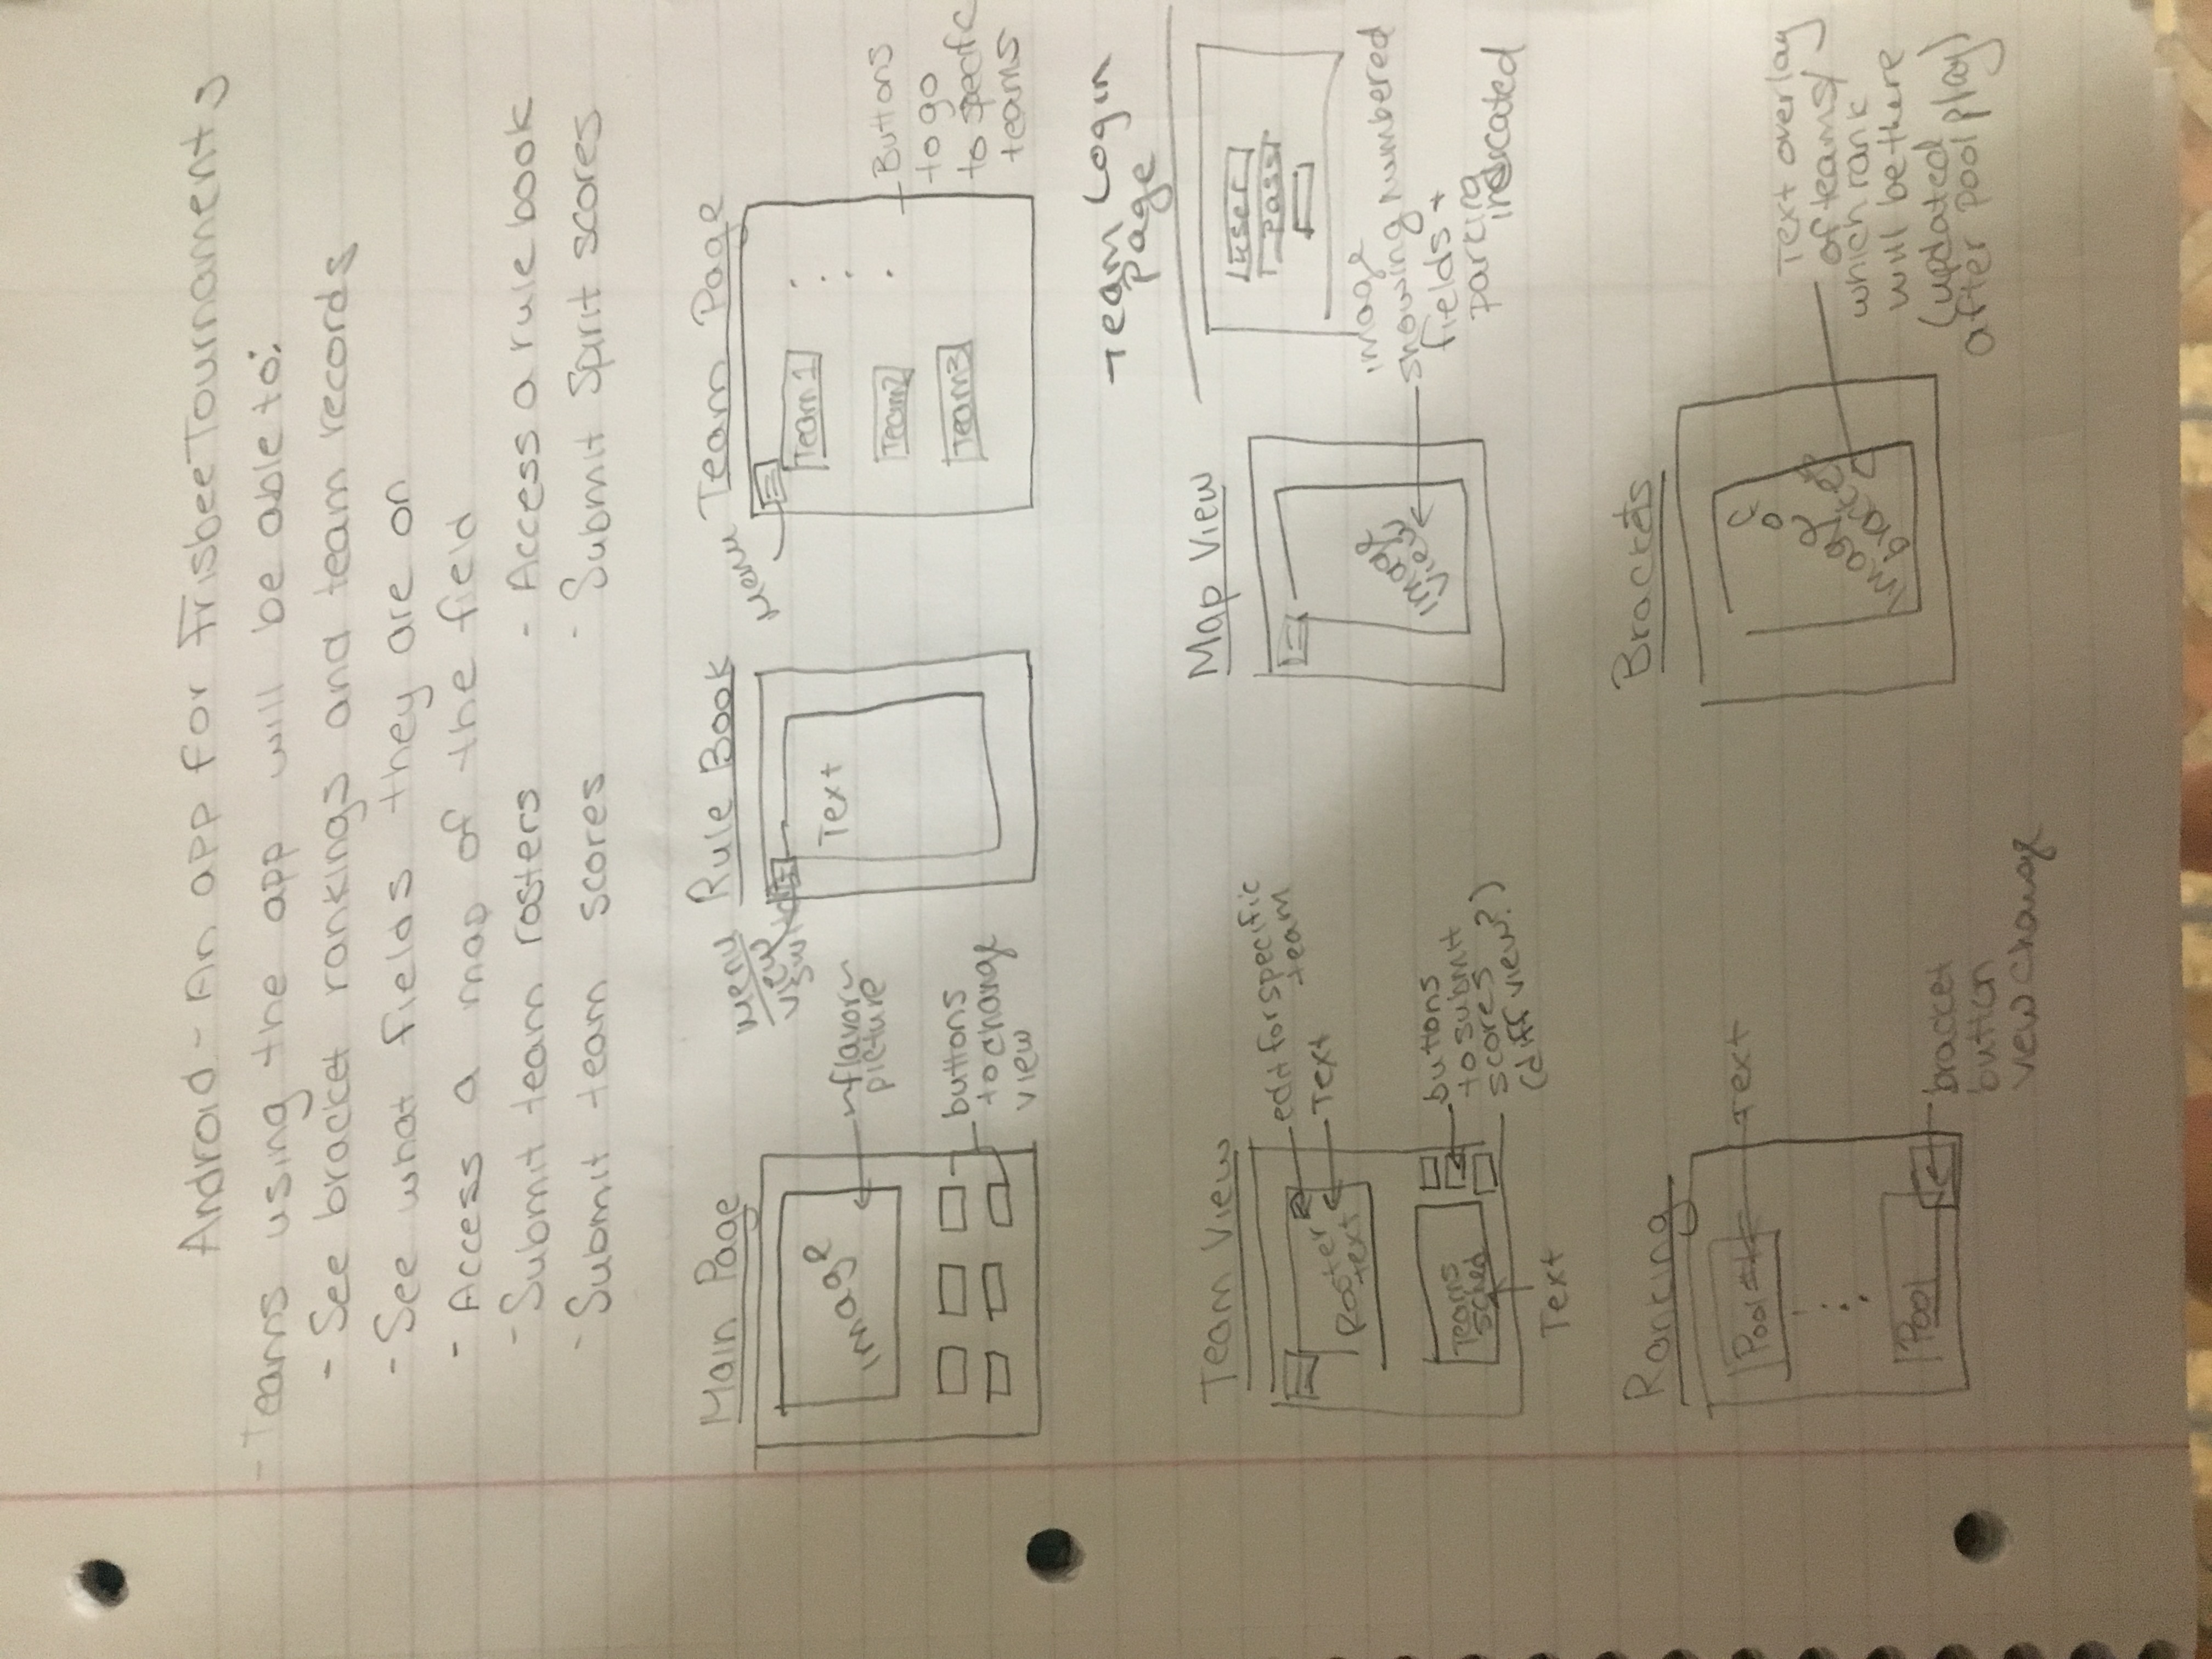 Android - An app for Frisbee Tournaments
- Teams using the app will be able to:
- See bracket rankings and team records
- See what fields they are on
- Access a map of the field
- Submit team rosters
- Access a rule book
- Submit team scores
- Submit Spirit scores
Main Page
Image
~flavor~
picture
buttons
to change
view
Rule Book
Menu
view
Text
Team Page
Menu
Team 1
Team 2
Team 3
Buttons
to go
to specific
teams
Team View
edit for specific
team
Roster
text
Text
Teams
sched
Text
buttons
to submit
scores
(diff view?)
Map View
Image
view
image
showing numbered
fields +
parking
indicated
Team Login
Page
user
Pass
Ranking
Pool
Text
Pool
bracket
button
view change
Brackets
Image of
bracket
Text overlay
of teams/
which rank
will be there
(updated
after pool play)